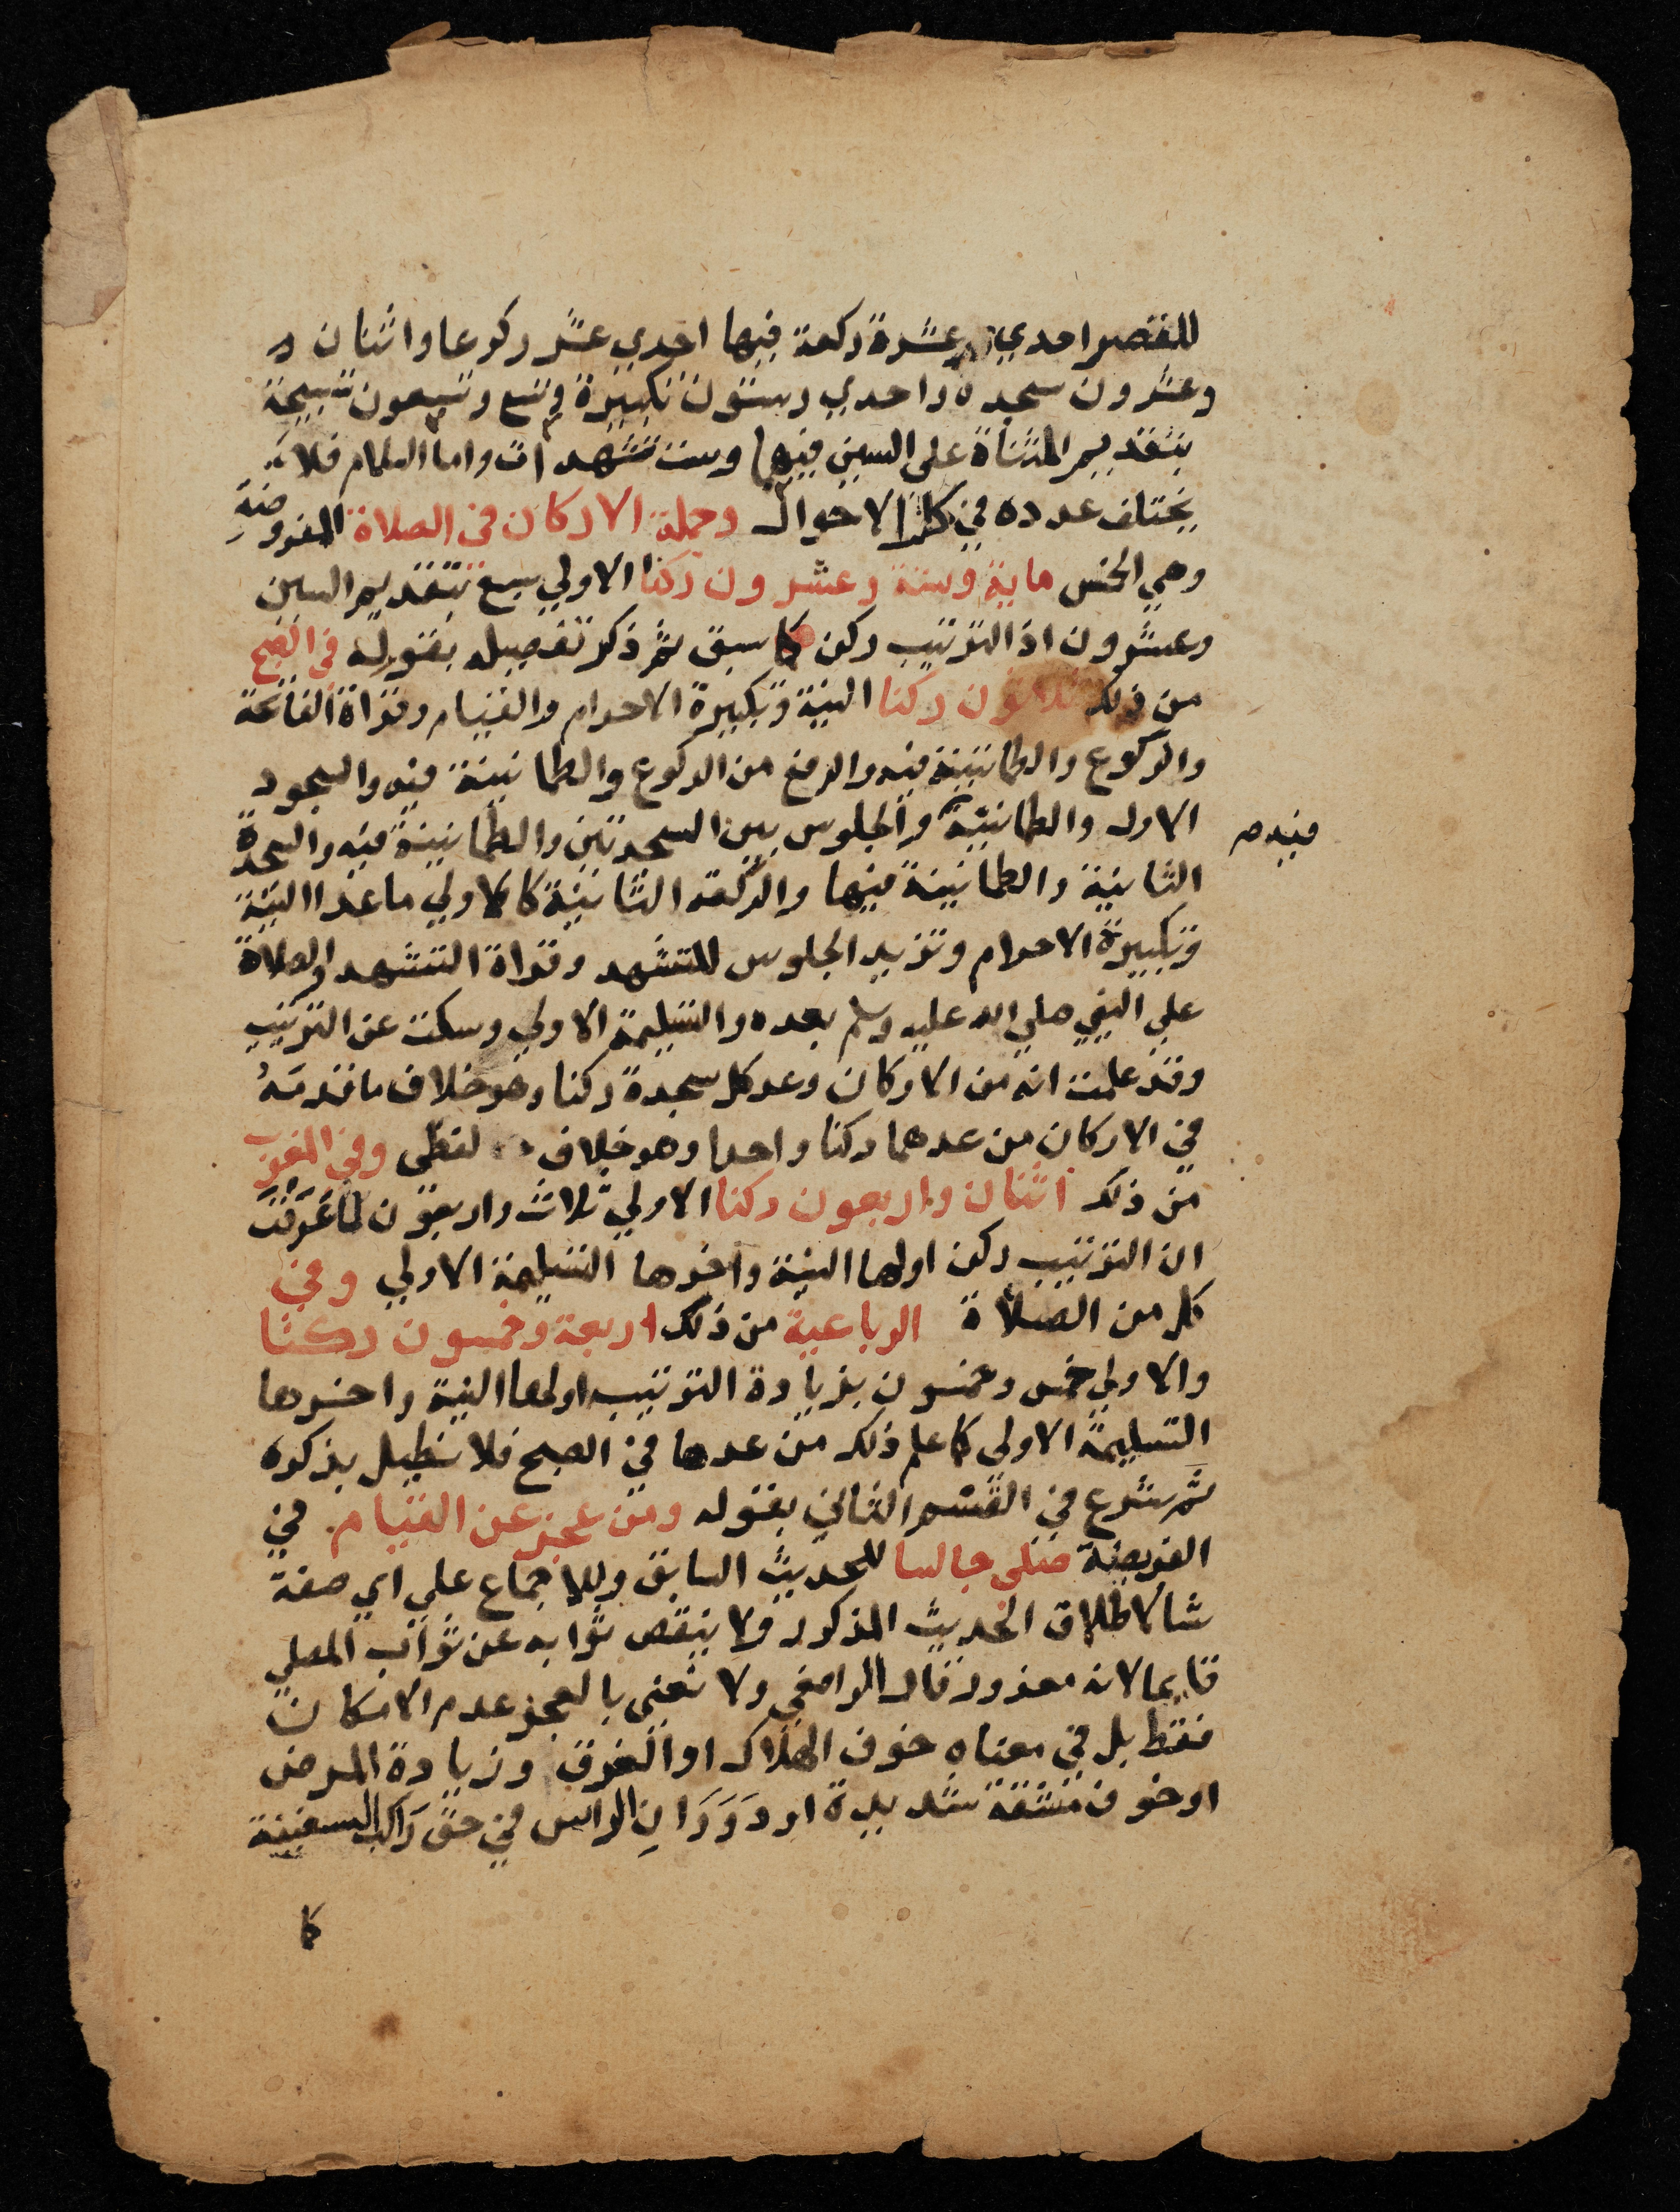 للقصر احدي عشرة ركعة فيها احدي عشر ركوعا واثنان و
وعشرون سجدة واحدي وستون تكبيرة وتسع وتسعون تسبيحة
بتقديم المثناة على السين فيهما وست تشهدات واما السلام فلا
يختلف عدده في كل الاحوال وجملة الاركان في الصلاة المفروضة
وهي الخمس ماية وستة وعشرون ركنا الاولي سبع بتقديم السين
وعشرون اذ الترتيب ركن كما سبق ثم ذكر تفصيله بقوله في الصبح
من ذلك ثلاثون ركنا النية وتكبيرة الاحرام والقيام وقراة الفاتحة
والركوع والطمانينة فيه والرفع من الركوع والطمانينة فيه والسجود
الاول والطمانينة والجلوس بين السجدتين والطمانينة فيه والسجدة
فيه صح
الثانية والطمانينة فيها والركعة الثانية كالاولي ما عدا النية
وتكبيرة الاحرام وتزيد الجلوس للتشهد وقراة التشهد والصلاة
علي النبي صلي الله عليه وسلم بعده والتسليمة الاولي وسكت عن الترتيب
وقد علمت انه من الاركان وعد كل سجدة ركنا وهو خلاف ما قدمه
في الاركان من عدهما ركنا واحدا وهو خلاف لفظي وفي المغرب
من ذلك اثنان واربعون ركنا الاولي ثلاث واربعون لما عرفت
ان الترتيب ركن اولها النية واخرها التسليمة الاولي وفي
كل من الصلاة الرباعية من ذلك اربعة وخمسون ركنا
والاولي خمس وخمسون بزيادة الترتيب اولها النية واخرها
التسليمة الاولي كما علم ذلك من عدها في الصبح فلا نطيل بذكره
ثم شرع في القسم الثاني بقوله ومن عجز عن القيام في
الفريضة صلى جالسا للحديث السابق وللاجماع علي اي صفة
شا لاطلاق الحديث المذكور ولا ينقص ثوابه عن ثواب المصلي
قايما لانه معذور قال الرافعي ولا نعني بالعجز عدم الامكان
فقط بل في معناه خوف الهلاك او الغرق وزيادة المرض
او خوف مشقة شديدة او دَوَرَانِ الراس في حق راكب السفينة
كما